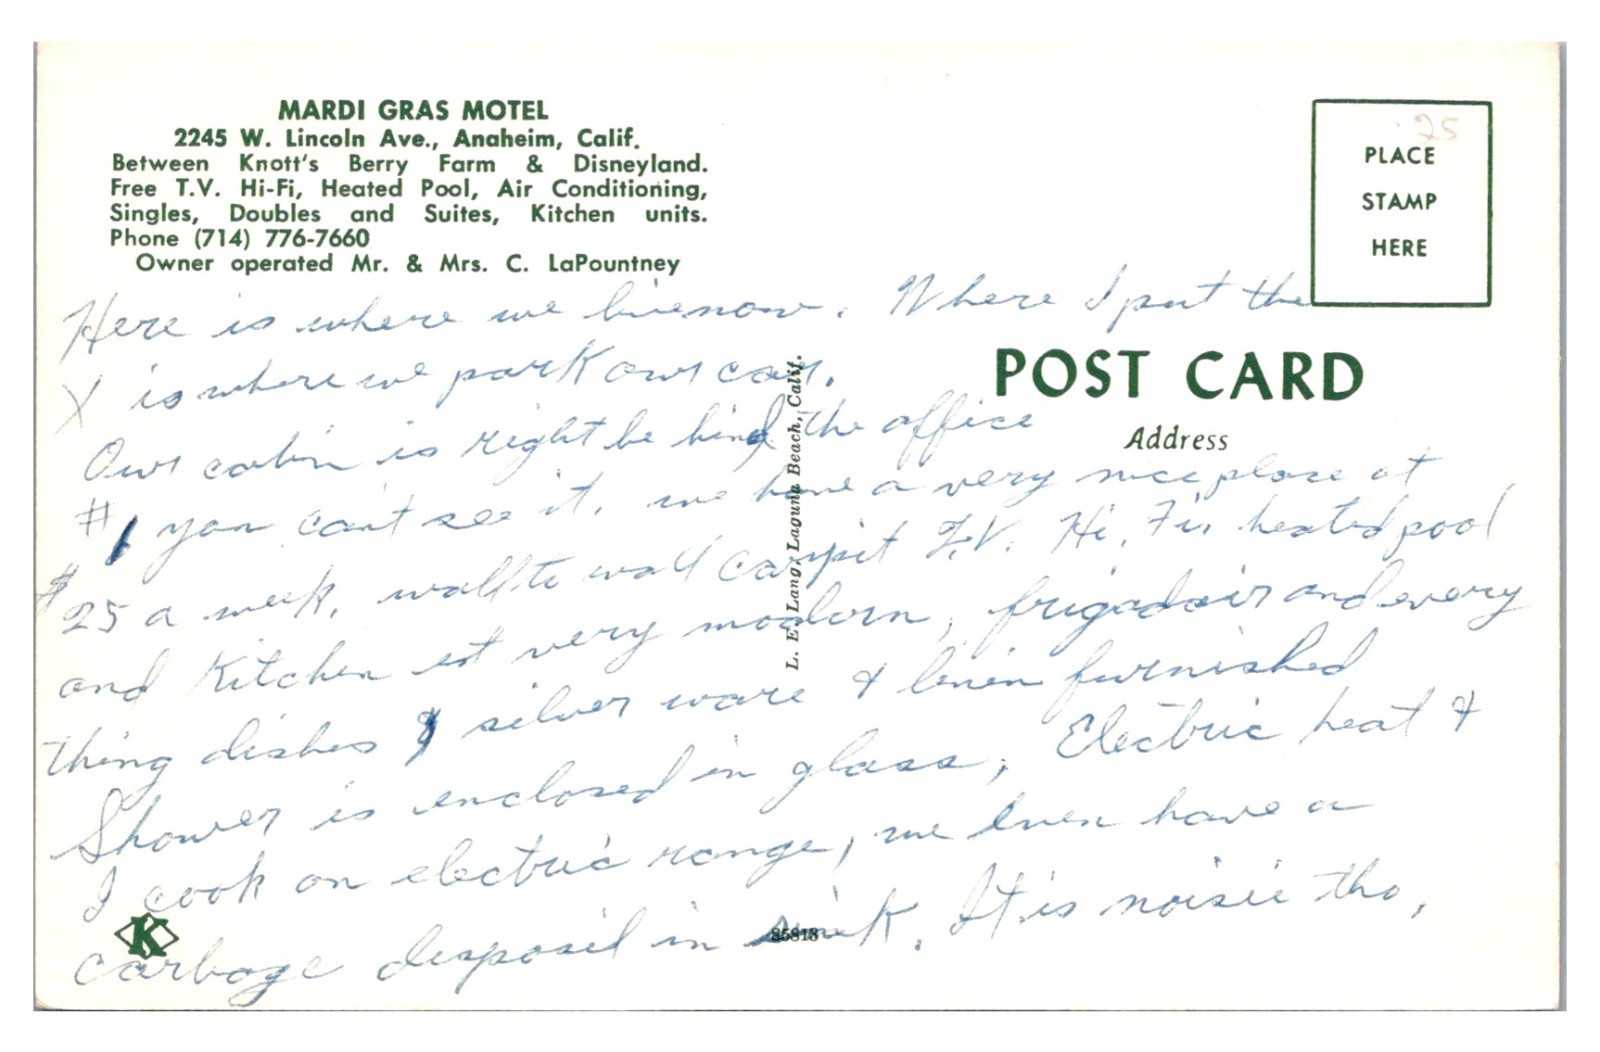 MARDI GRAS MOTEL
2245 W. Lincoln Ave., Anaheim, Calif.
Between Knott's Berry Farm & Disneyland.
Free T.V. Hi-Fi, Heated Pool, Air Conditioning,
Singles, Doubles and Suites, Kitchen units.
Phone (714) 776-7660
Owner operated Mr. & Mrs. C. LaPountney
.25
PLACE
STAMP
HERE
POST CARD
Address
L. E. Lang, Laguna Beach, Calif.
Here is where we live now. Where I put the
X is where we park our car.
Our cabin is right be hind the office
#1 you can't see it. we have a very nice place at
$25 a week, wall to wall carpit T.V. Hi. Fi, heated pool
and Kitchen et very modern, frigadair and every
thing dishes & silver ware & linen furnished
Shower is enclosed in glass, Electric heat &
I cook on electric range, we even have a
carbage disposil in sink. It is noisie tho,
K
85818